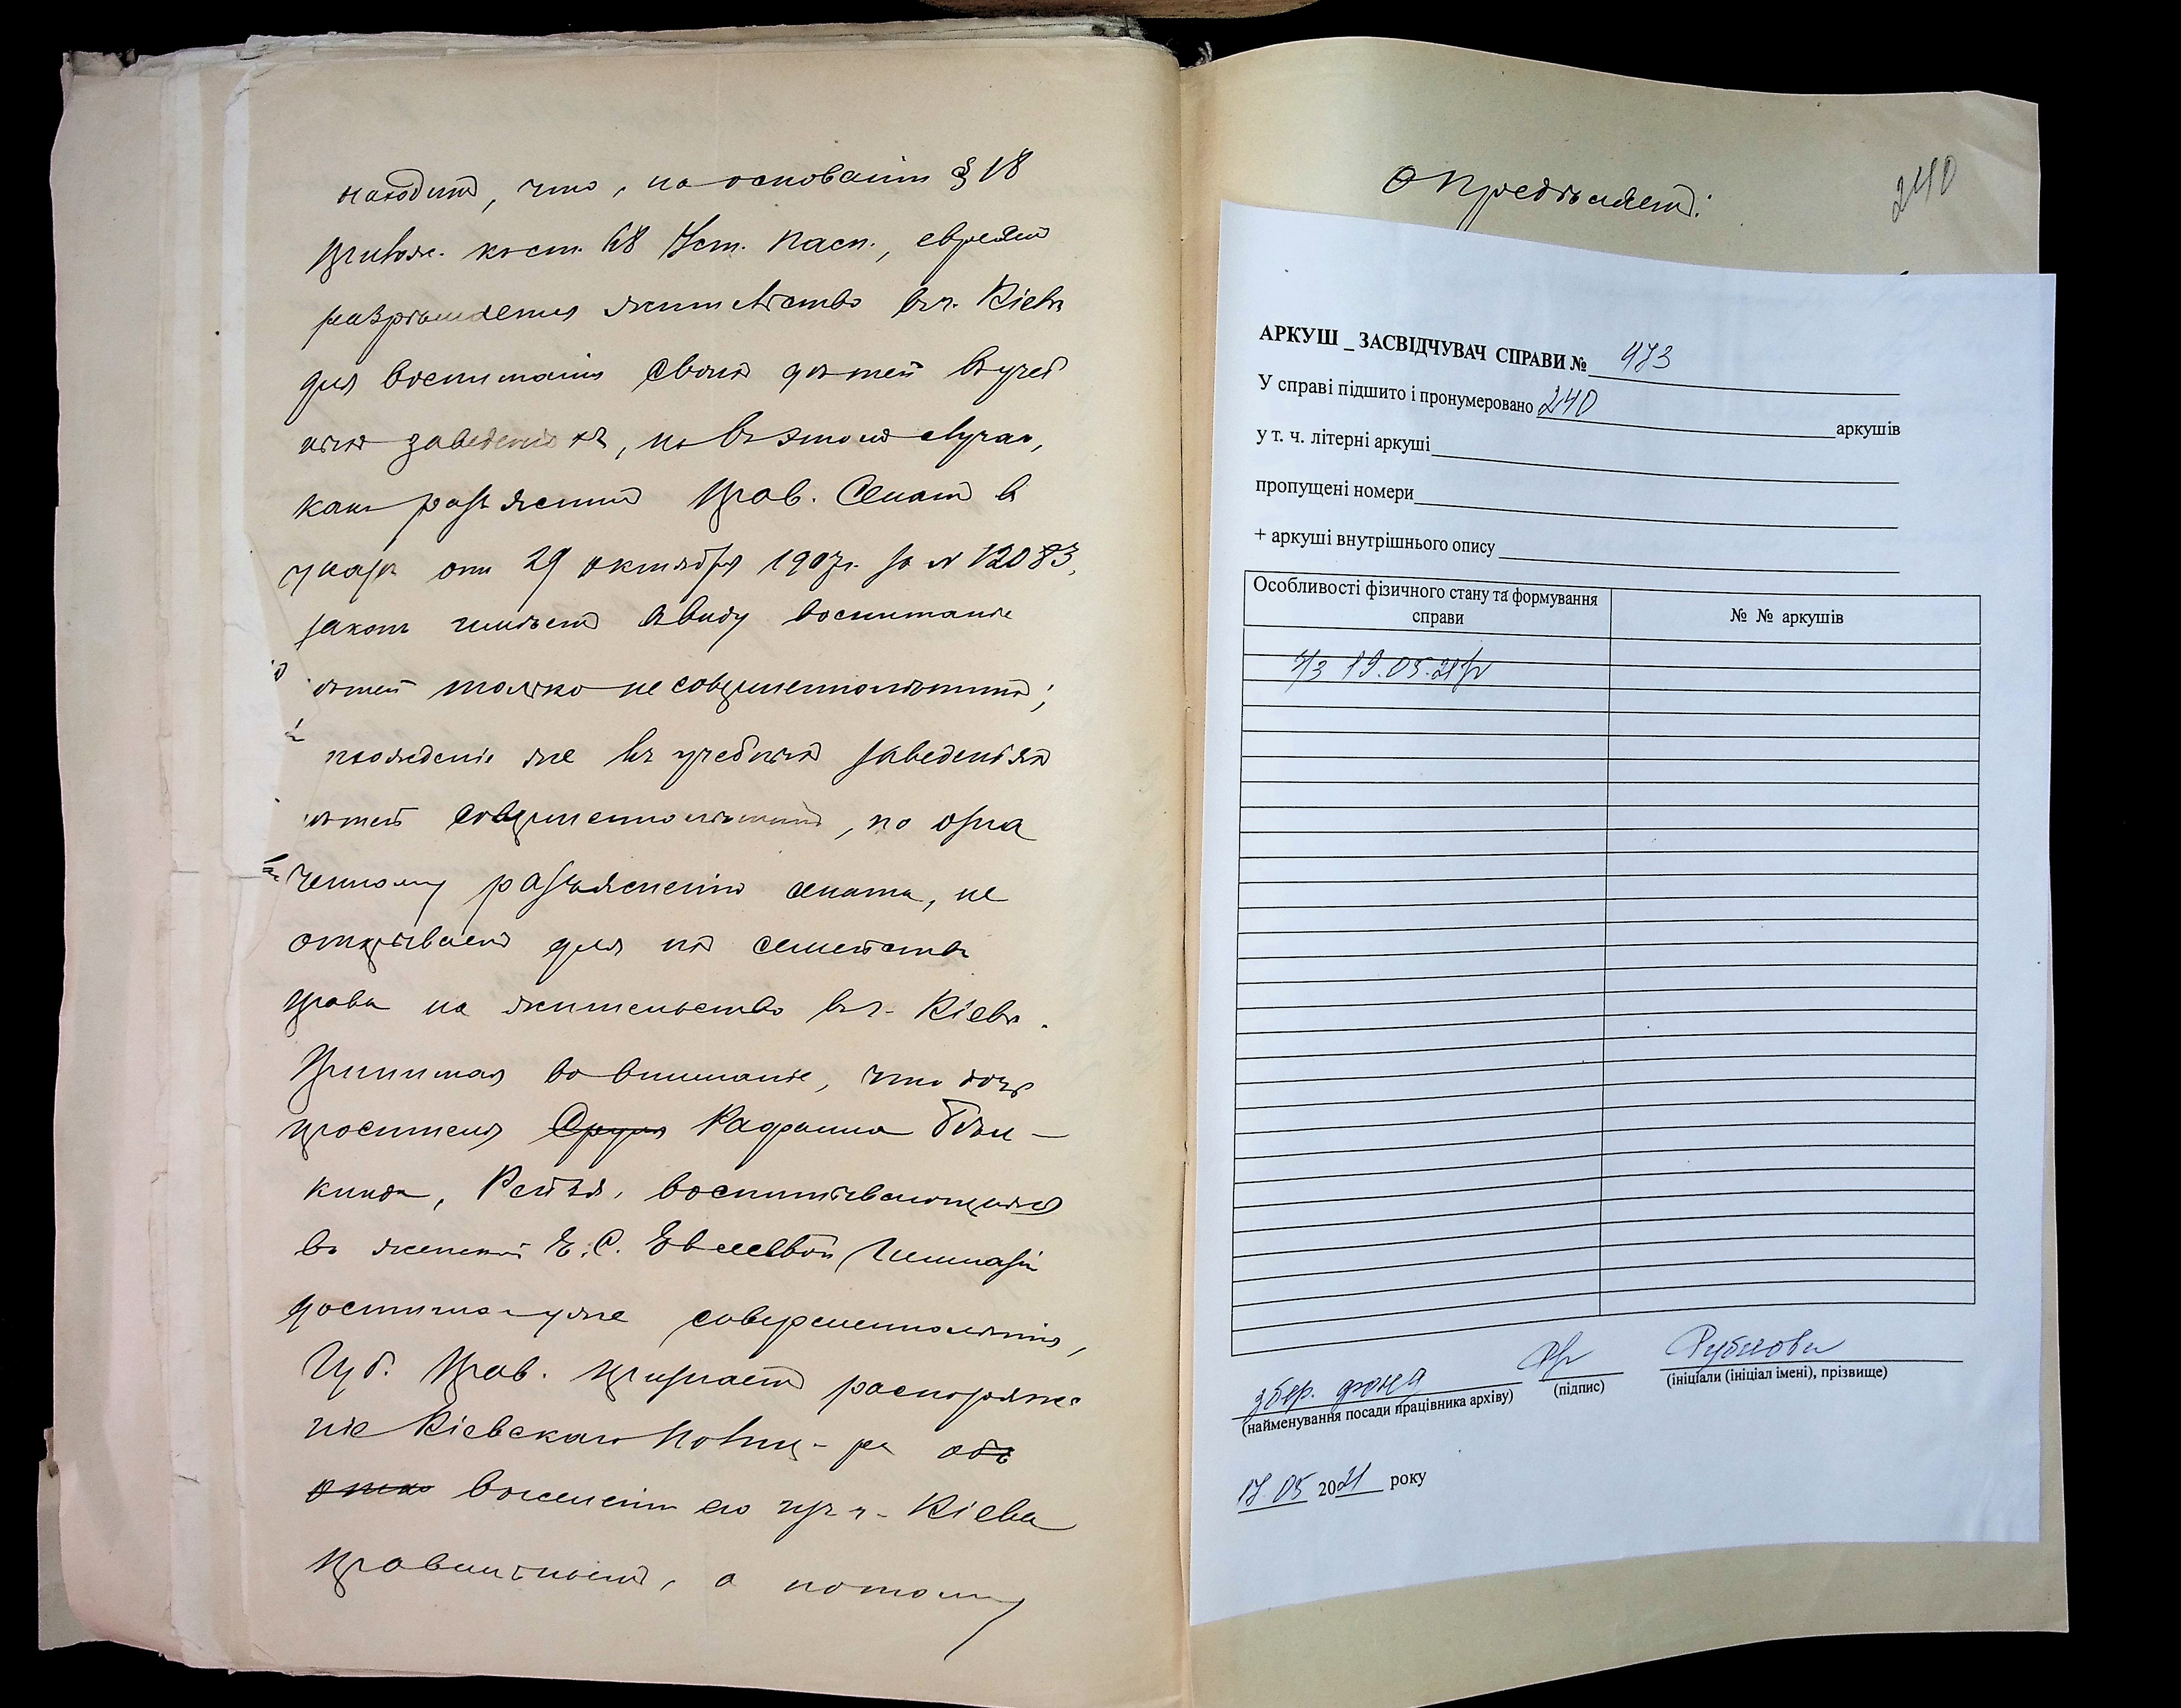 находитъ, что, на основаніи § 18
прилож. къ ст. 68 Уст. Пасп., евреямъ
разрѣшается жительство въ г. Кіевѣ
для воспитанія своихъ дѣтей въ учеб
ныхъ заведеніяхъ, но въ этомъ случаѣ,
какъ разъяснилъ Прав. Сенатъ въ
указѣ отъ 29 октября 1907 г. за № 12083,
законъ имѣетъ ввиду воспитаніе
дѣтей только несовершеннолѣтнихъ;
нахожденіе же въ учебныхъ заведеніяхъ
дѣтей совершеннолѣтнихъ, по озна
ченному разъясненію сената, не
открываетъ для ихъ семействъ
права на жительство въ г. Кіевѣ.
Принимая во вниманіе, что дочь
просителя Рафаила Бѣи-
кинда, Рейзя, воспитывающаяся
въ женской Е. С. Евсеевой гимназіи
достигла уже совершеннолѣтія,
Губ. Прав. признаетъ распоряже
ніе Кіевскаго Полиц-ра объ
выселеніи его изъ г. Кіева
правильнымъ, а потому
Опредѣляетъ:
240
АРКУШ _ ЗАСВІДЧУВАЧ СПРАВИ № 473
У справі підшито і пронумеровано 240 аркушів
у т. ч. літерні аркуші
пропущені номери
+ аркуші внутрішнього опису
Особливості фізичного стану та формування справи
№ № аркушів
19.05.21р
збер. фонд Рубцова
(найменування посади працівника архіву) (підпис) (ініціали (ініціал імені), прізвище)
17.05 2021 року